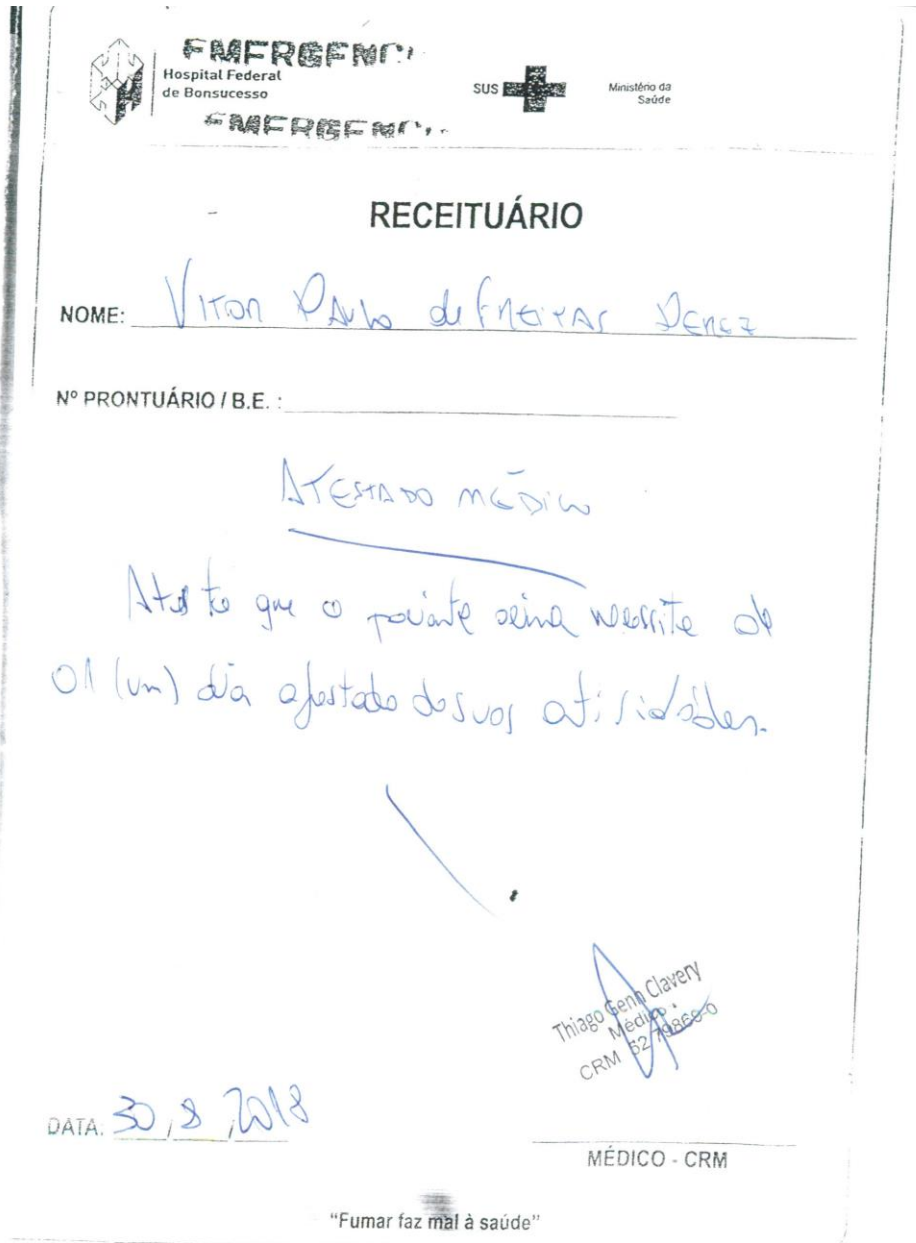 EMERGENCI
Hospital Federal
de Bonsucesso
EMERGENC
SUS
Ministério da
Saúde
RECEITUÁRIO
NOME: Vitor Paulo de Freitas Perez
Nº PRONTUÁRIO / B.E. :
Atestado Médico
Atesto que o paciente acima necessita de
01 (um) dia afastado de suas atividades.
Thiago Genn Clavery
Médico
CRM 52 79860-0
DATA: 30/8/2018
MÉDICO - CRM
"Fumar faz mal à saúde"